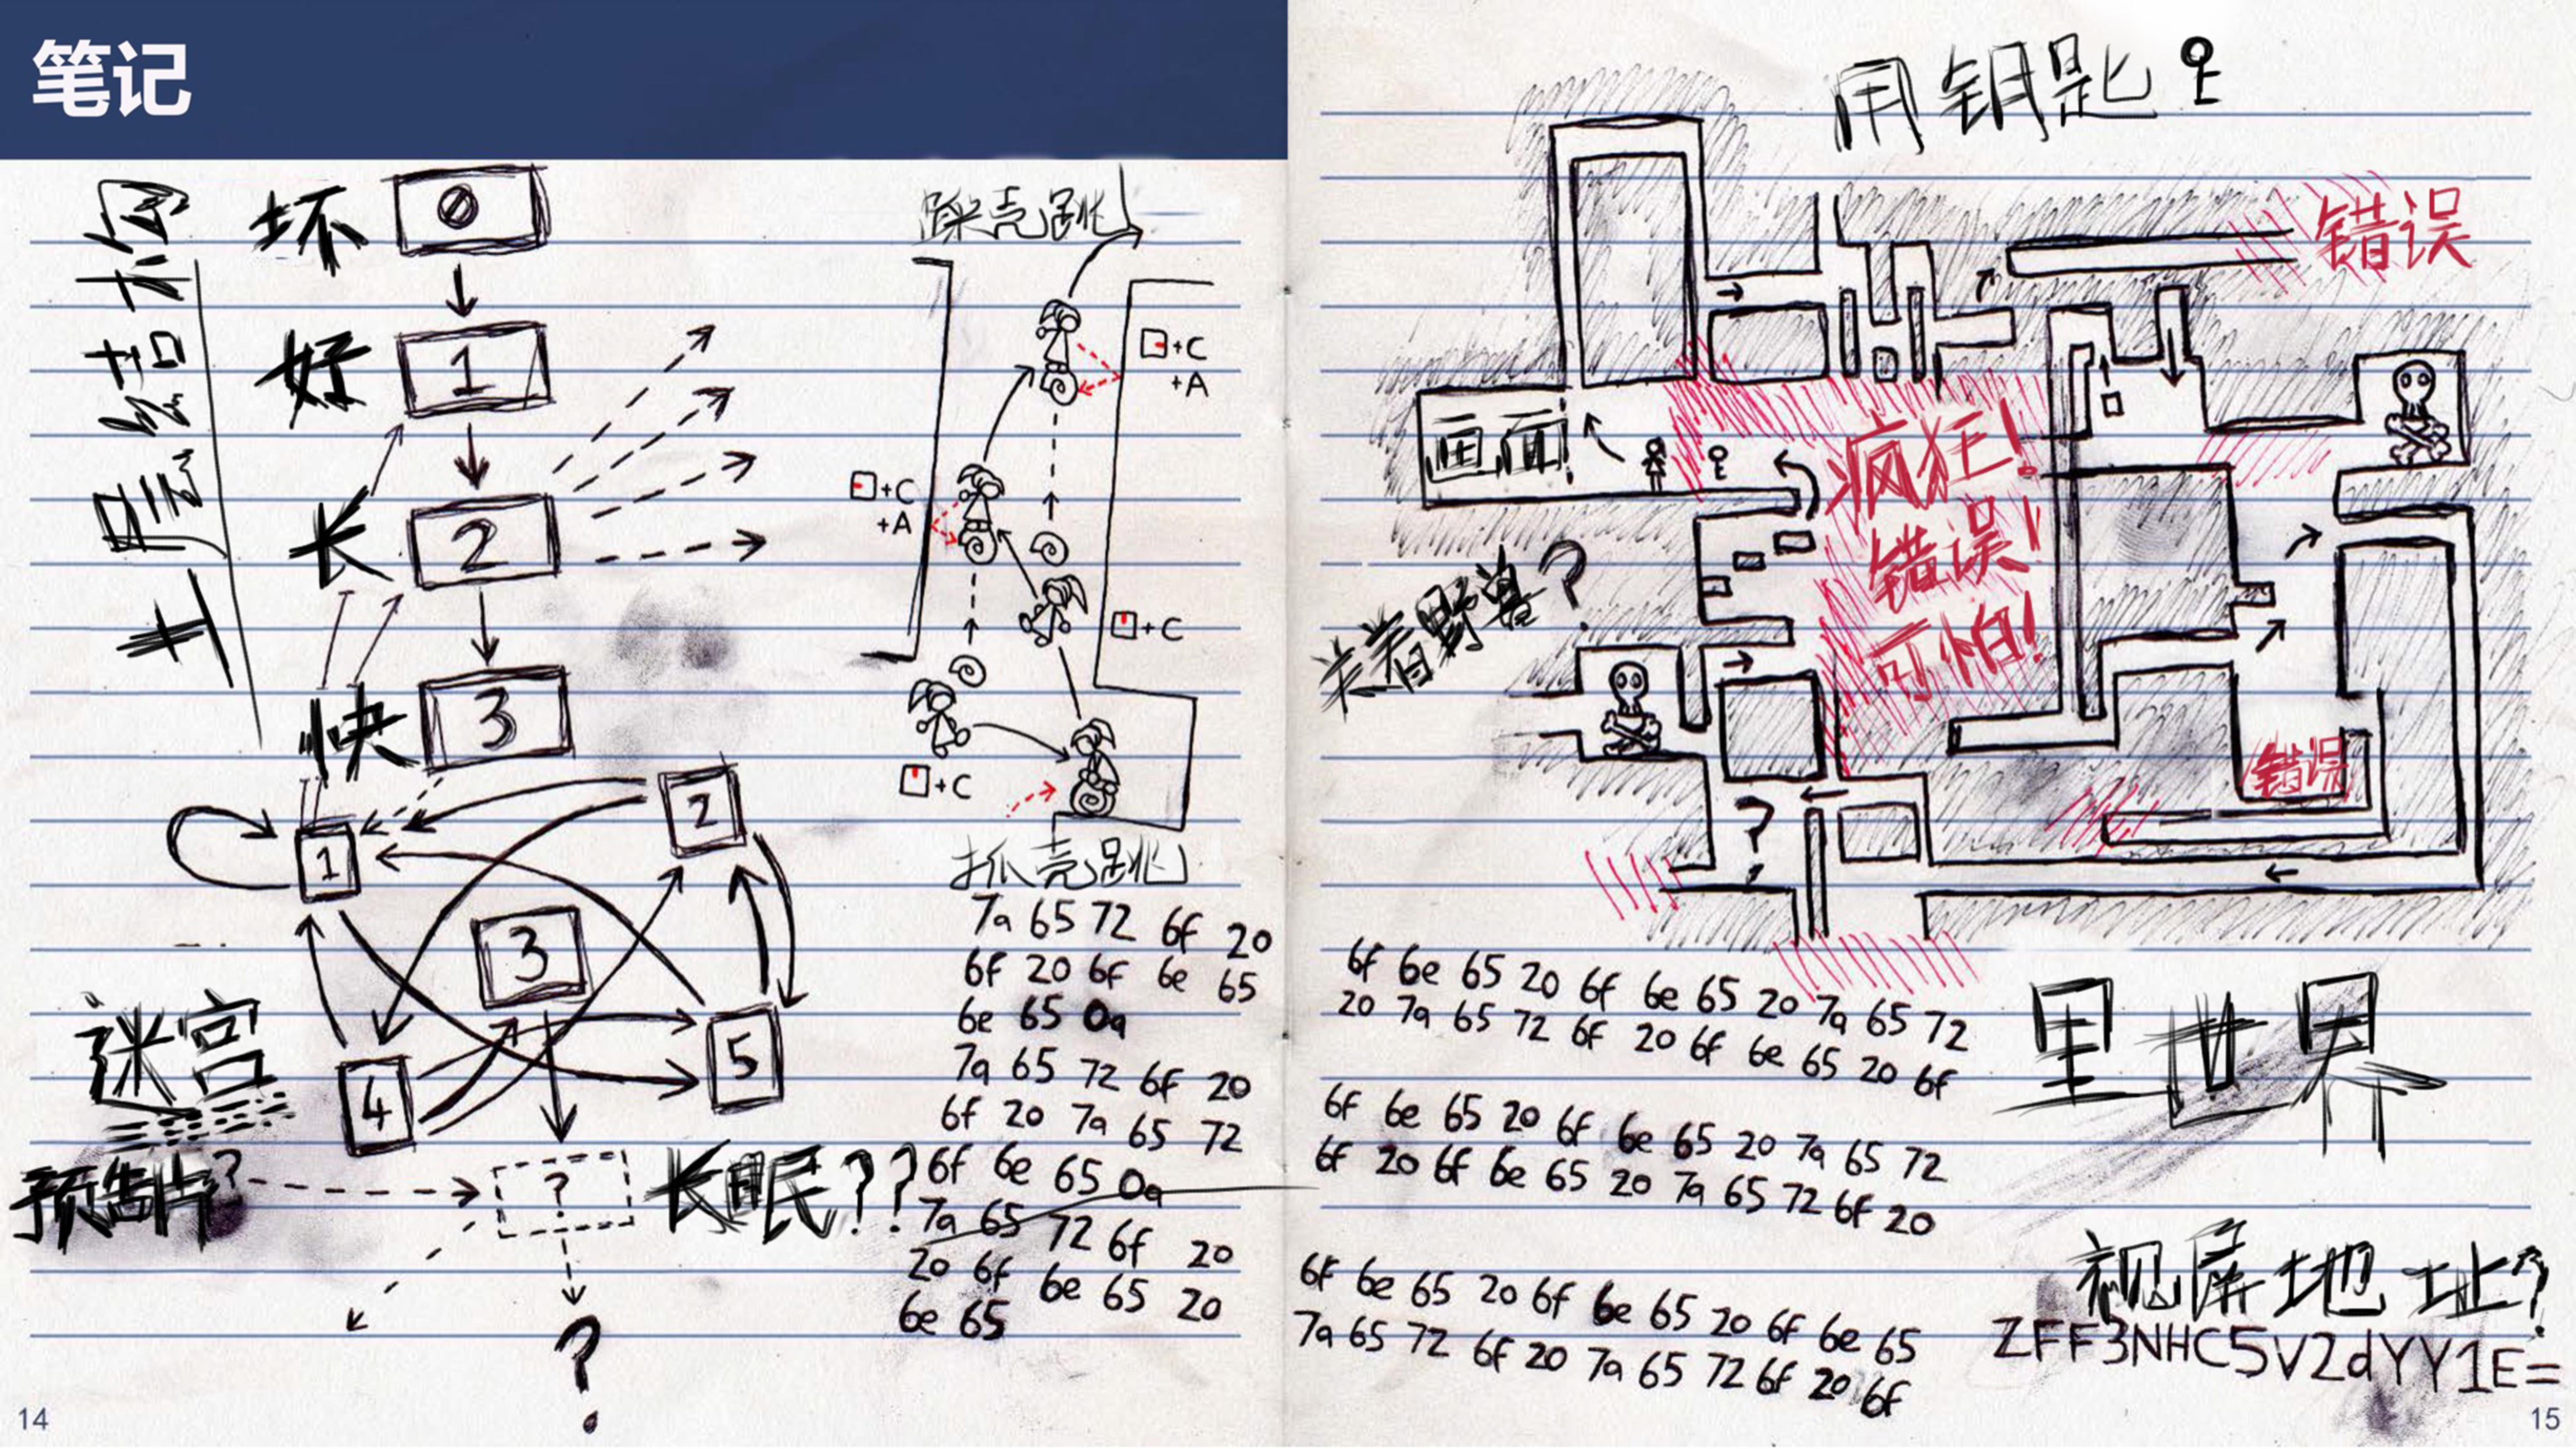 笔记
坏
0
好
1
长
2
快
3
1
2
3
4
5
迷宫
预制片?
?
长眠??
?
踩壳跳
+C
+A
+C
+A
+C
+C
抓壳跳
7a 65 72 6f 20
6f 20 6f 6e 65
6e 65 0a
7a 65 72 6f 20
6f 20 7a 65 72
6f 6e 65 0a
7a 65 72 6f 20
20 6f 6e 65 20
6e 65
14
用钥匙
错误
画面!
疯狂!
错误!
可怕!
关着野兽?
错误
?
6f 6e 65 20 6f 6e 65 20 7a 65 72
20 7a 65 72 6f 20 6f 6e 65 20 6f
6f 6e 65 20 6f 6e 65 20 7a 65 72
6f 20 6f 6e 65 20 7a 65 72 6f 20
6f 6e 65 20 6f 6e 65 20 6f 6e 65
7a 65 72 6f 20 7a 65 72 6f 20 6f
里世界
视屏地址?
ZFF3NHC5V2dYY1E=
15